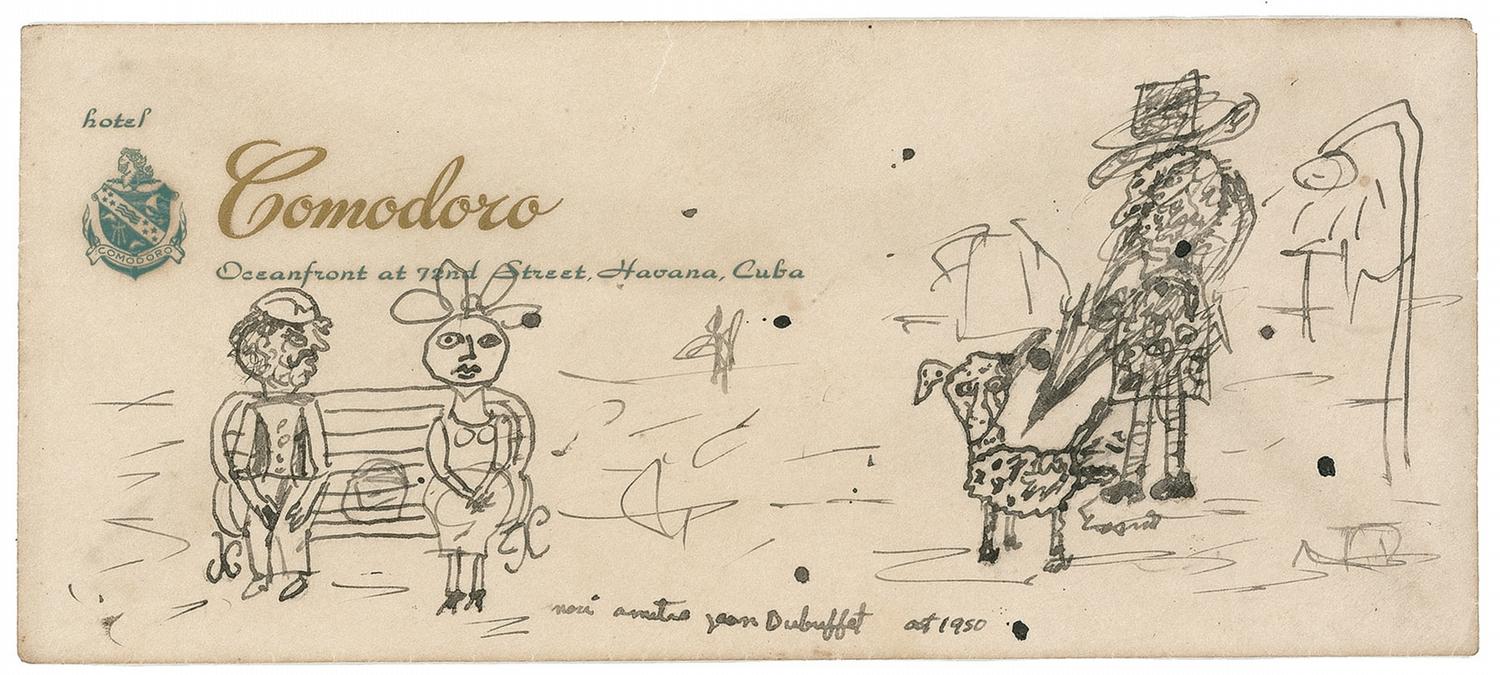 hotel
COMODORO
Comodoro
Oceanfront at 72nd Street, Havana, Cuba
jean Dubuffet 1950